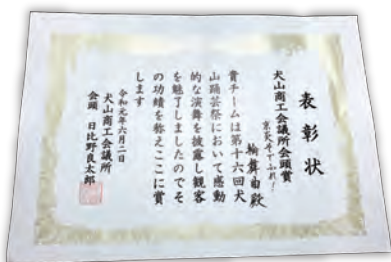 表彰状
犬山商工会議所会頭賞
輪舞曲殿
貴チームは第十六回犬
山踊芸祭において感動
的な演舞を披露し観客
を魅了しましたのでそ
の功績を称えここに賞
します
令和元年六月二日
犬山商工会議所
会頭 日比野良太郎